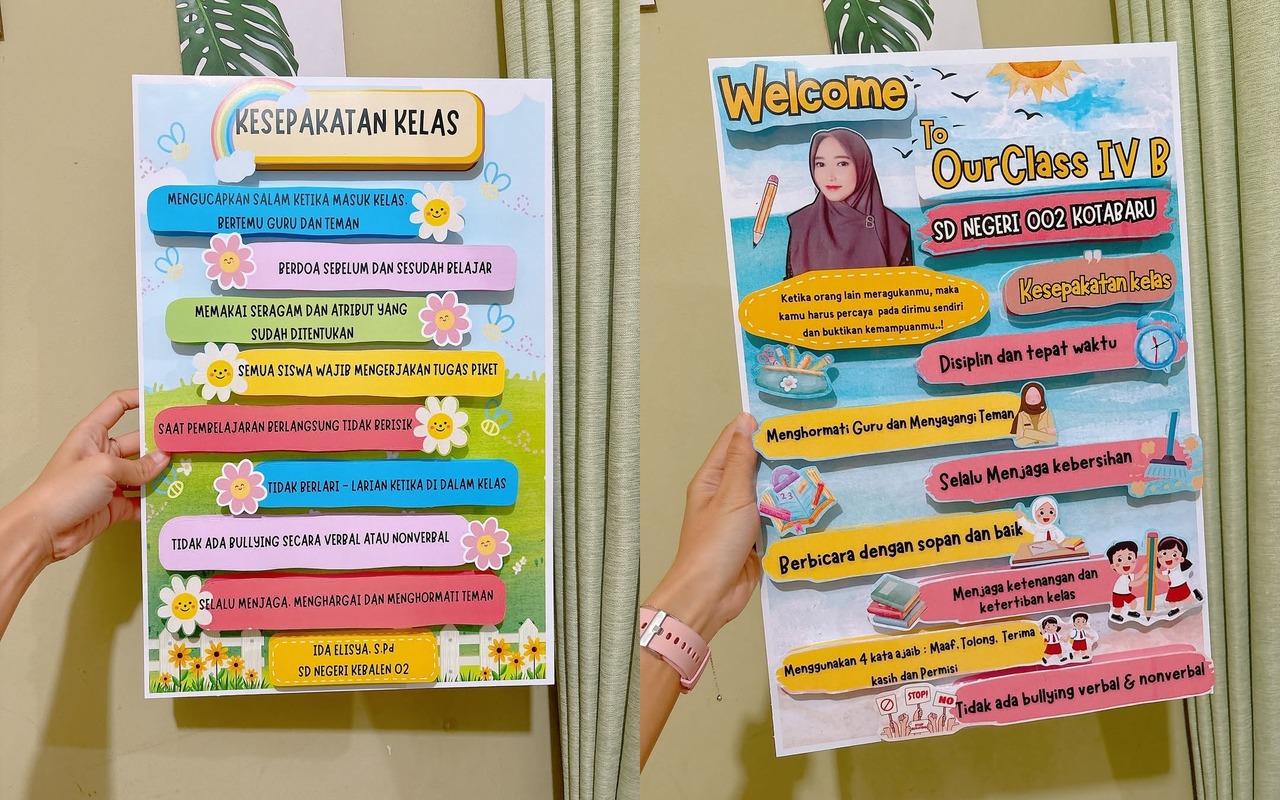 KESEPAKATAN KELAS
MENGUCAPKAN SALAM KETIKA MASUK KELAS,
BERTEMU GURU DAN TEMAN
BERDOA SEBELUM DAN SESUDAH BELAJAR
MEMAKAI SERAGAM DAN ATRIBUT YANG
SUDAH DITENTUKAN
SEMUA SISWA WAJIB MENGERJAKAN TUGAS PIKET
SAAT PEMBELAJARAN BERLANGSUNG TIDAK BERISIK
TIDAK BERLARI - LARIAN KETIKA DI DALAM KELAS
TIDAK ADA BULLYING SECARA VERBAL ATAU NONVERBAL
SELALU MENJAGA, MENGHARGAI DAN MENGHORMATI TEMAN
IDA ELISYA, S.Pd
SD NEGERI KEBALEN 02
Welcome
To
OurClass IV B
SD NEGERI 002 KOTABARU
Ketika orang lain meragukanmu, maka
kamu harus percaya pada dirimu sendiri
dan buktikan kemampuanmu..!
Kesepakatan kelas
Disiplin dan tepat waktu
Menghormati Guru dan Menyayangi Teman
Selalu Menjaga kebersihan
Berbicara dengan sopan dan baik
Menjaga ketenangan dan
ketertiban kelas
Menggunakan 4 kata ajaib : Maaf, Tolong, Terima
kasih dan Permisi
STOP!
NO
Tidak ada bullying verbal & nonverbal